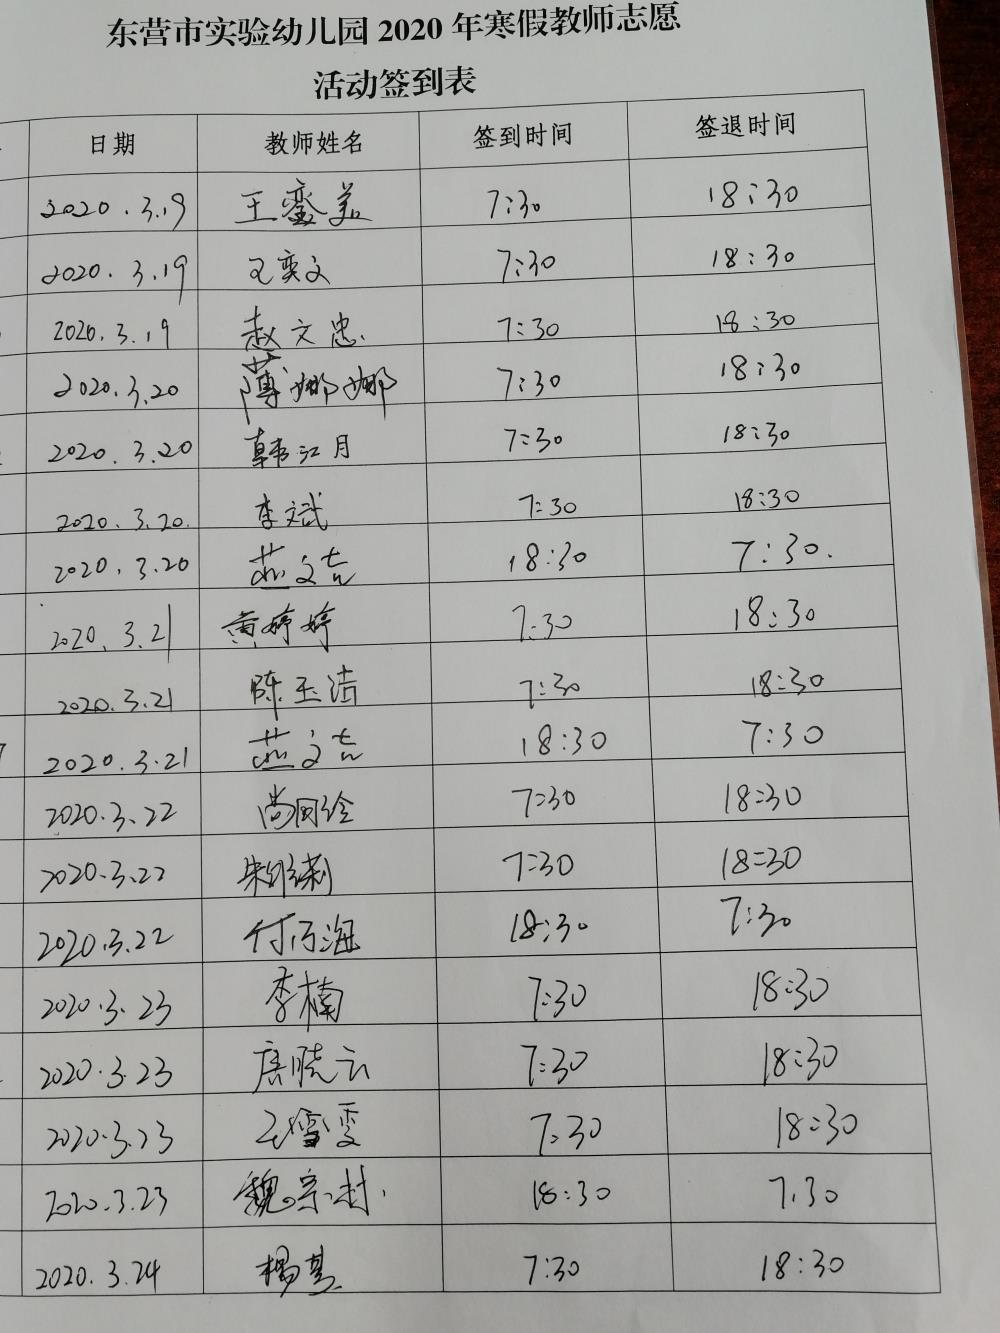 东营市实验幼儿园 2020 年寒假教师志愿
活动签到表
日期 教师姓名 签到时间 签退时间
2020.3.19 王鸾美 7:30 18:30
2020.3.19 王奕文 7:30 18:30
2020.3.19 赵文忠 7:30 18:30
2020.3.20 薄娜娜 7:30 18:30
2020.3.20 韩江月 7:30 18:30
2020.3.20. 李斌 7:30 18:30
2020.3.20 燕文吉 18:30 7:30.
2020.3.21 黄婷婷 7:30 18:30
2020.3.21 陈玉洁 7:30 18:30
2020.3.21 燕文吉 18:30 7:30
2020.3.22 尚 7:30 18:30
2020.3.22 朱 7:30 18:30
2020.3.22 付 海 18:30 7:30
2020.3.23 李楠 7:30 18:30
2020.3.23 唐晓云 7:30 18:30
2020.3.23 王雪雯 7:30 18:30
2020.3.23 魏宗村 18:30 7:30
2020.3.24 杨 7:30 18:30